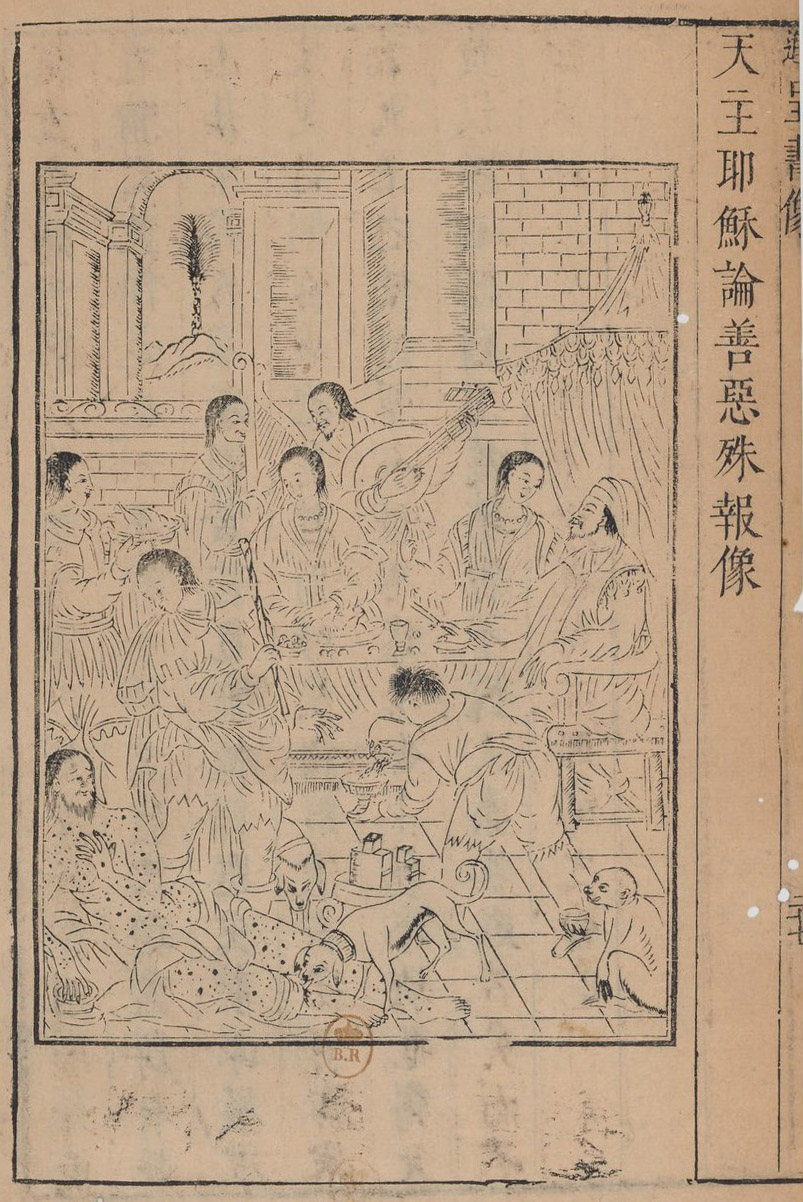 天主耶穌論善惡殊報像
書像
B.R